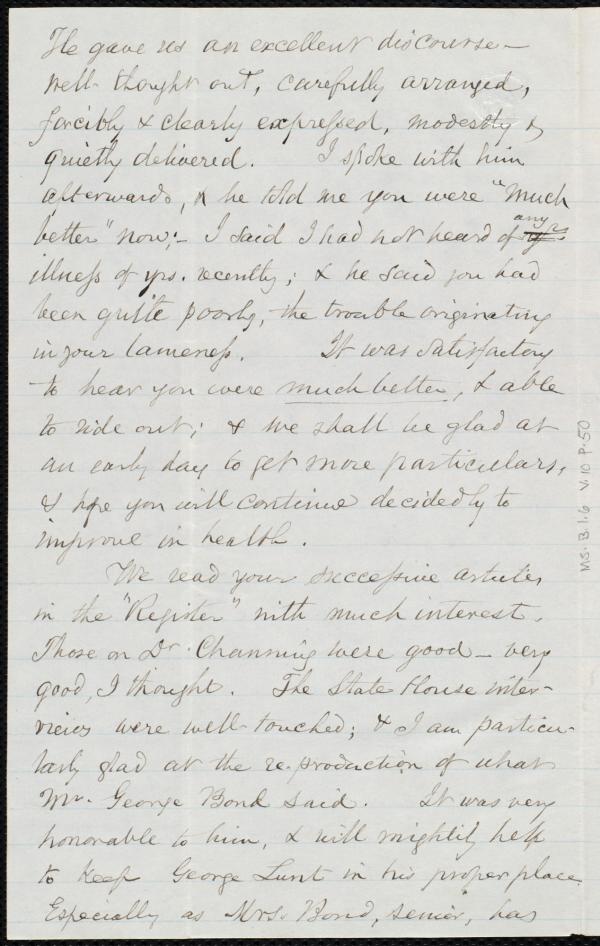 He gave us an excellent discourse –
well thought out, carefully arranged,
forcibly & clearly expressed, modestly &
quietly delivered. I spoke with him
afterwards, & he told me you were "much
better" now; – I said I had not heard of any
illness of yrs. recently; & he said you had
been quite poorly, the trouble originating
in your lameness. It was satisfactory
to hear you were much better, & able
to ride out; & we shall be glad at
an early day to get more particulars,
& hope you will continue decidedly to
improve in health.
We read your successive articles
in the "Register" with much interest.
Those on Dr. Channing were good – very
good, I thought. The State House inter-
views were well-touched; & I am particu-
larly glad at the re-production of what
Mr. George Bond said. It was very
honorable to him, & will mightily help
to keep George Lunt in his proper place.
Especially as Mrs. Bond, senior, has
MS. B.1.6 V.10 P.50